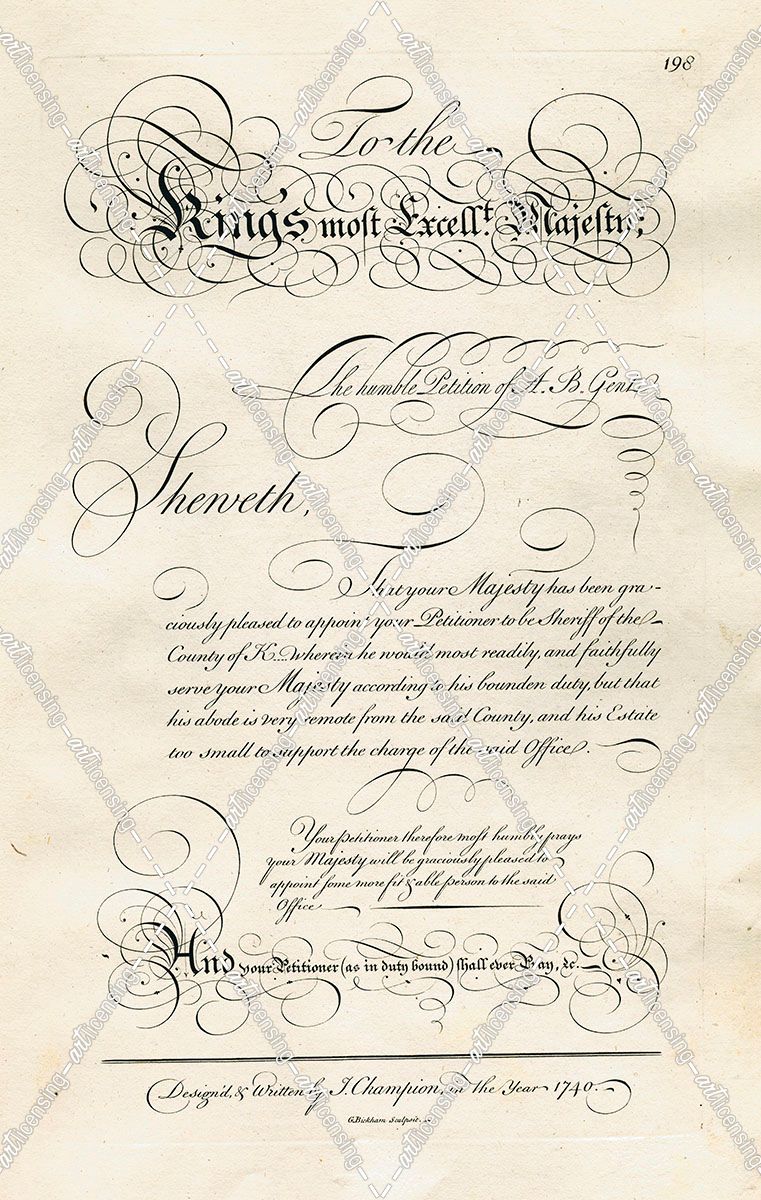 198
To the
King's most Excell.t Majesty,
The humble Petition of A. B. Gent.
Sheweth,
That your Majesty has been gra-
ciously pleased to appoint your Petitioner to be Sheriff of the
County of K... wherein he would most readily, and faithfully
serve your Majesty according to his bounden duty, but that
his abode is very remote from the said County, and his Estate
too small to support the charge of the said Office.
Your Petitioner therefore most humbly prays
your Majesty will be graciously pleased to
appoint some more fit & able person to the said
Office
And your Petitioner (as in duty bound) shall ever Pay, &c.
Design'd, & Written by J. Champion, in the Year 1740.
G. Bickham Sculpsit.
artlicensing